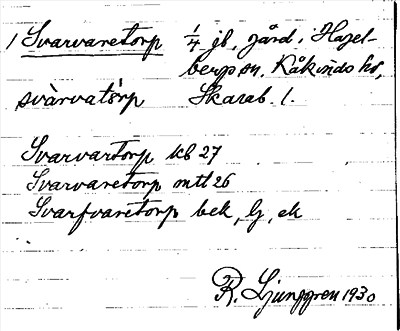 1 Svarvaretorp 1/4 jb, gård. Hagel-
berg sn, Kåkinds hd,
svàrvatårp Skarab. l.
Svarvartorp kb 27
Svarvaretorp mtl 26
Svarfvaretorp bek, lj, ek
R. Ljunggren 1930